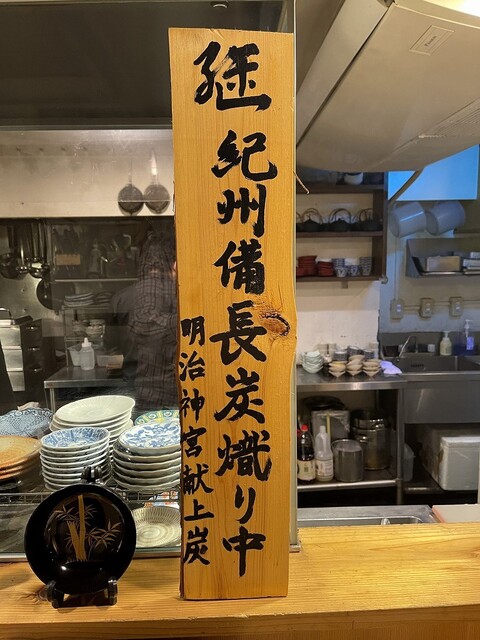 継
紀州備長炭熾り中
明治神宮献上炭